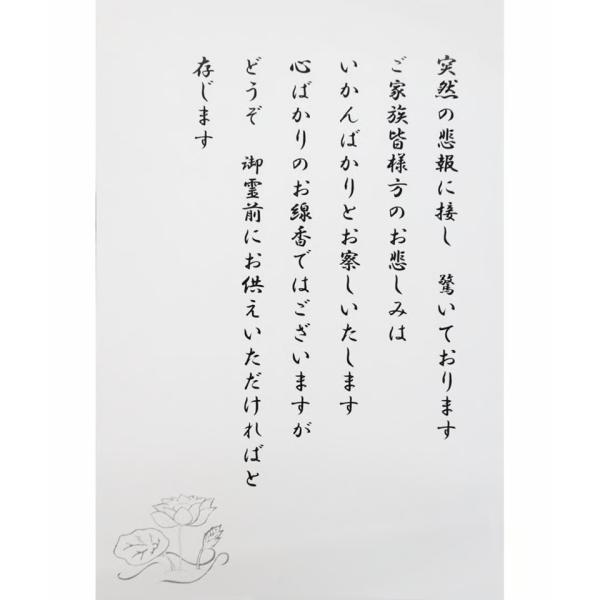 突然の悲報に接し　驚いております
ご家族皆様方のお悲しみは
いかんばかりとお察しいたします
心ばかりのお線香ではございますが
どうぞ　御霊前にお供えいただければと
存じます